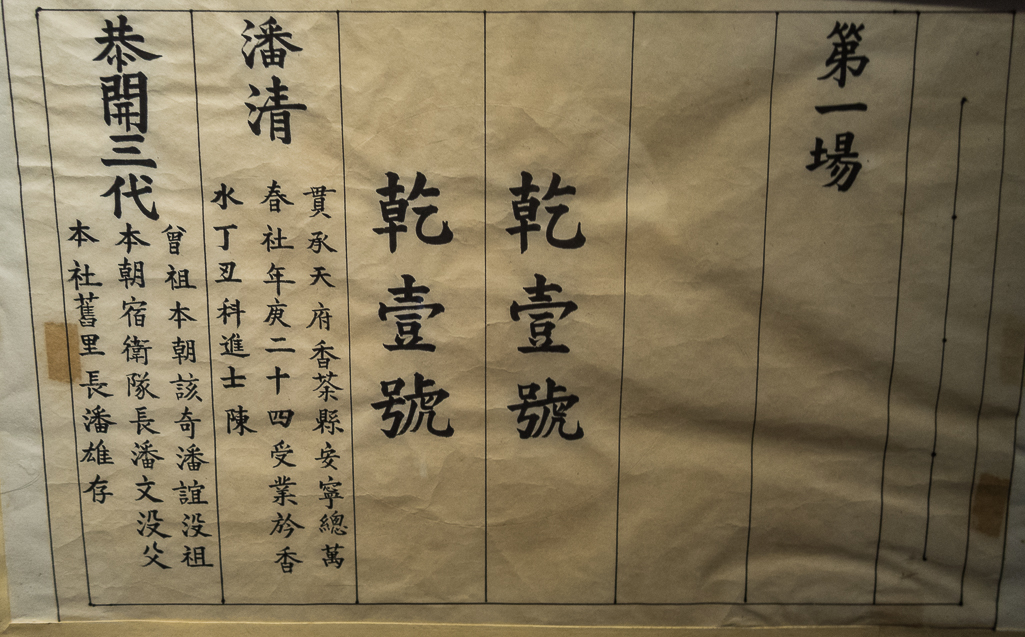 第一場
乾壹號
乾壹號
潘清
貫承天府香茶縣安寧總萬
春社年庚二十四受業於香
水丁丑科進士陳
恭開三代
曾祖本朝該奇潘誼没祖
本朝宿衛隊長潘文没父
本社舊里長潘雄存